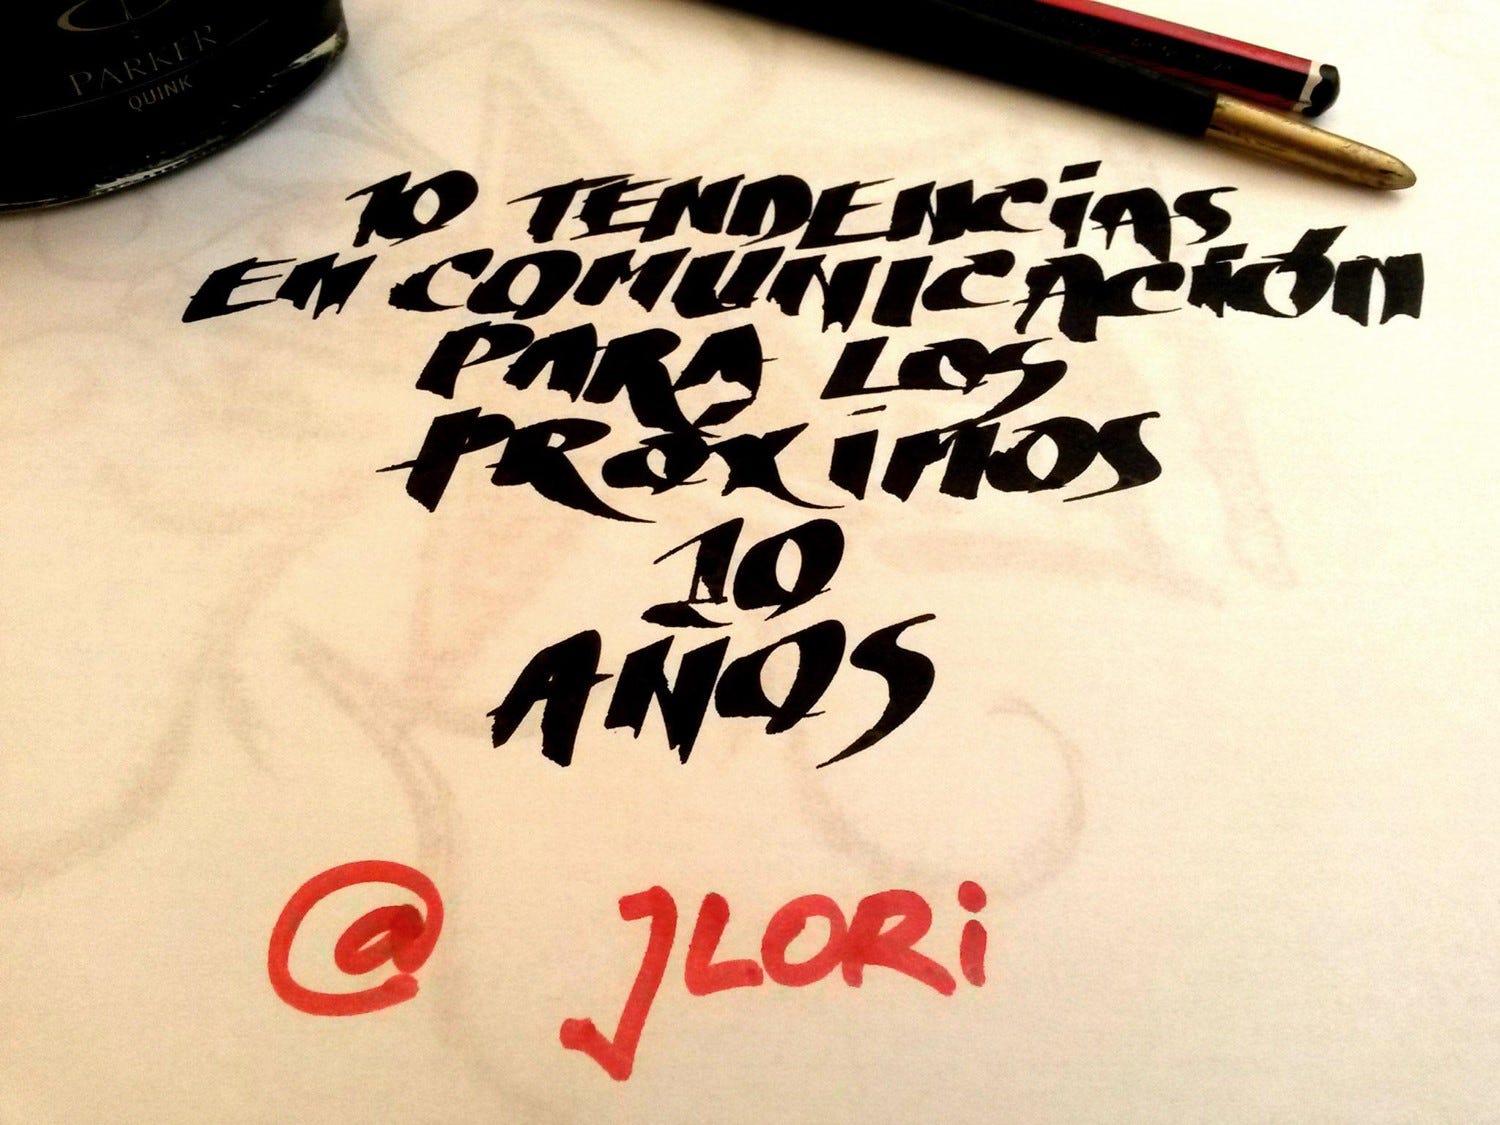 PARKER
QUINK
10 TENDENCiAS
EN COMUNICACIÓN
PARA LOS
PRÓXiMOS
10
AÑOS
@ JLORi